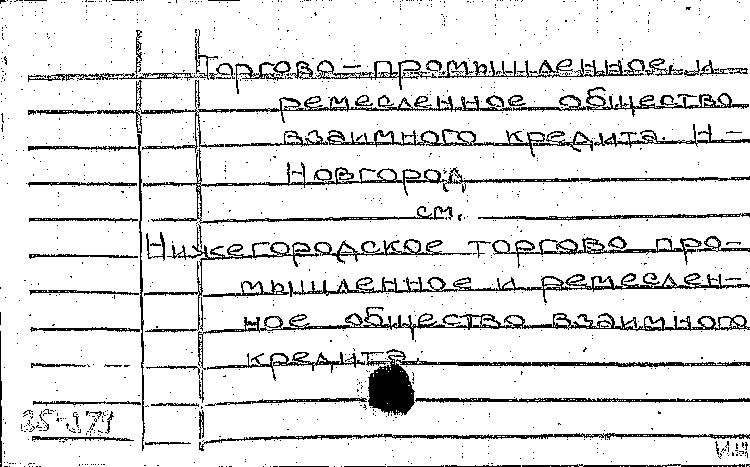 Торгово-промышленное и
ремесленное общество
взаимного кредита. Н-
Новгород
см.
Нижегородское торгово про-
мышленное и ремеслен-
ное общество взаимного
кредита.